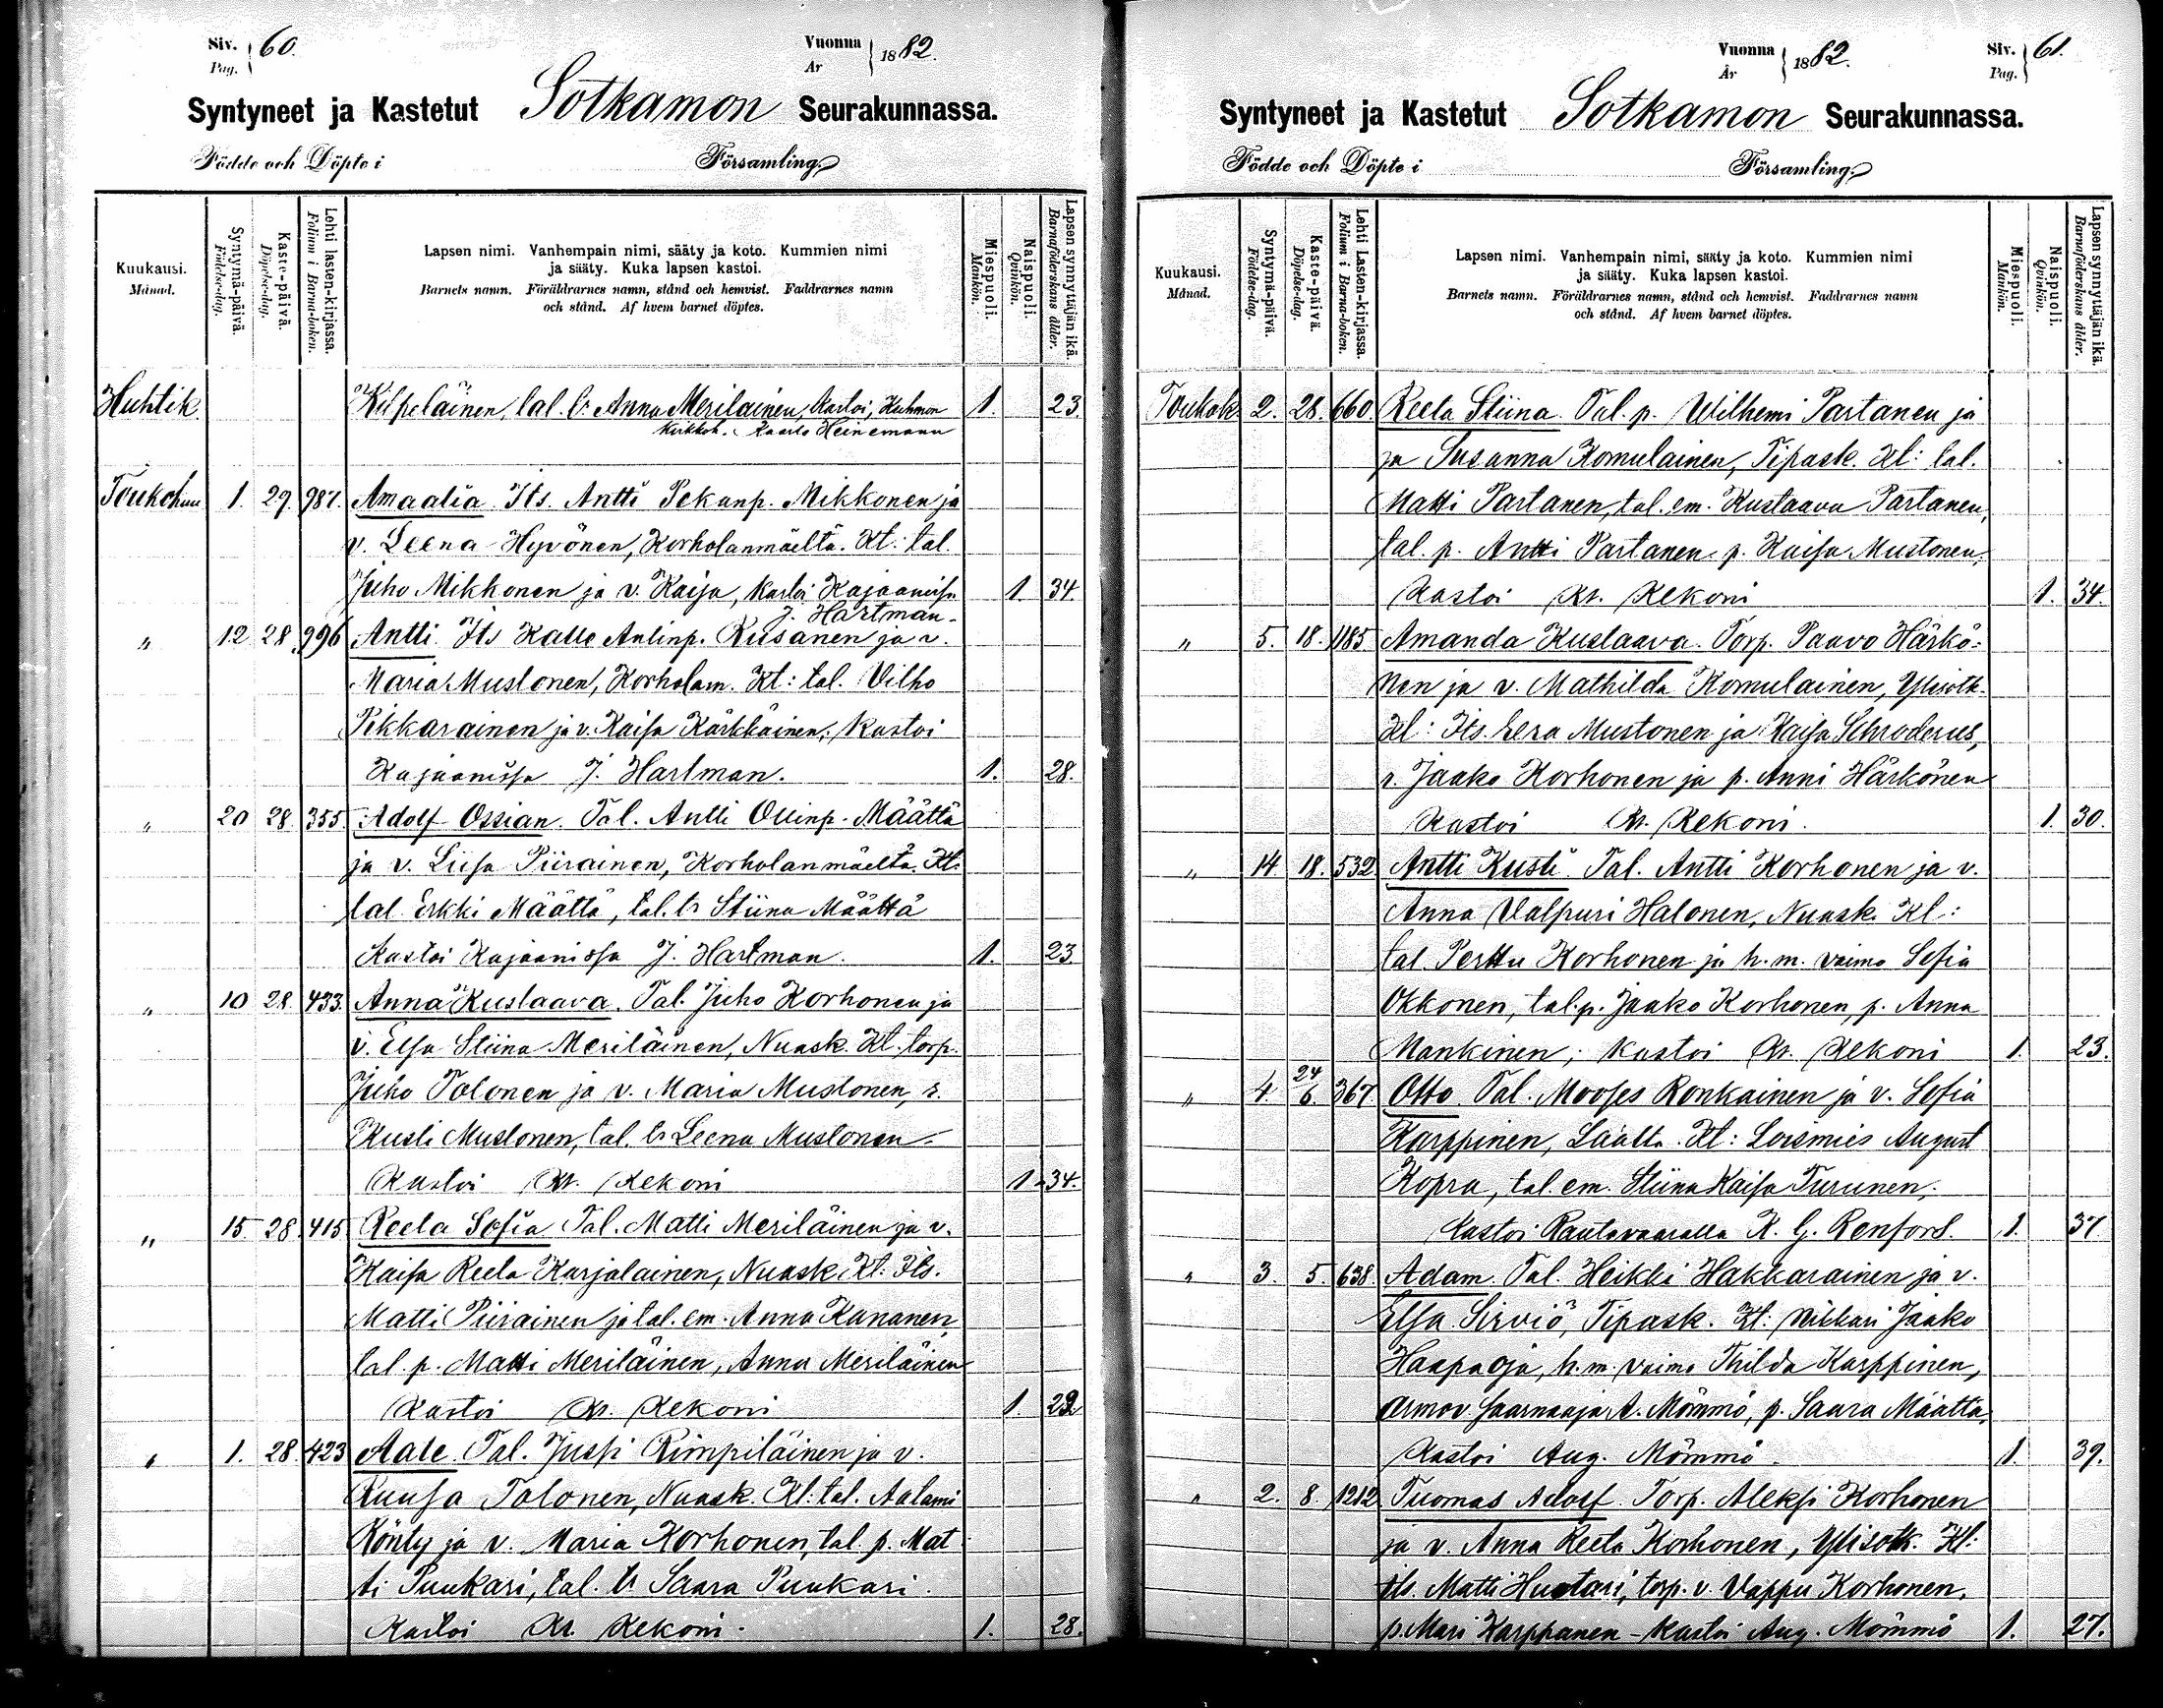 Siv. 60.
Pag.
Vuonna 1882.
År
Syntyneet ja Kastetut Sotkamon Seurakunnassa.
Födde och Döpte i Församling.
Kuukausi. Månad.
Syntymä-päivä. Födelse-dag.
Kaste-päivä. Döpelse-dag.
Lehti lasten-kirjassa. Folium i Barna-boken.
Lapsen nimi. Vanhempain nimi, sääty ja koto. Kummien nimi
ja sääty. Kuka lapsen kastoi.
Barnets namn. Föräldrarnes namn, stånd och hemvist. Faddrarnes namn
och stånd. Af hvem barnet döptes.
Miespuoli. Mankön.
Naispuoli. Qvinkön.
Lapsen synnyttäjän ikä. Barnaföderskans ålder.
Huhtik. Kilpeläinen, tal. tr Anna Meriläinen, Kastoi, Kuhmon 1. 23.
Kirkkoh. Kaarlo Heinemann
Toukokuu 1. 29. 987. Amaalia. Its. Antti Pekanp. Mikkonen ja
v. Leena Hyvönen, Korholanmäeltä. Kt: tal.
Juho Mikkonen ja v. Kaisa, kastoi Kajaanissa 1. 34.
J. Hartman.
" 12 28. 996 Antti. Its Kalle Antinp. Rusanen ja v.
Maria Mustonen, Korholam. Kt: tal. Vilho
Pikkarainen ja v. Kaisa Kärkkäinen; kastoi
Kajaanissa J. Hartman. 1. 28.
" 20 28. 355 Adolf Ossian. Tal. Antti Ollinp. Määttä
ja v. Liisa Piirainen, Korholanmäeltä. Kt:
tal. Erkki Määttä, tal. tr Stiina Määttä
Kastoi Kajaanissa J. Hartman. 1. 23.
" 10 28. 433. Anna Kustaava. Tal. Juho Korhonen ja
v. Elsa Stiina Meriläinen, Nuask. Kt. torp.
Juho Tolonen ja v. Maria Mustonen, r.
Kusti Mustonen, tal. tr Leena Mustonen.
Kastoi Kr. Kekoni 1 34.
" 15 28. 415 Reeta Sofia Tal. Matti Meriläinen ja v.
Kaisa Reeta Karjalainen, Nuask. Kt: Its.
Matti Piirainen ja tal. em. Anna Kananen,
tal. p. Matti Meriläinen, Anna Meriläinen
Kastoi Kr. Kekoni 1.
" 1. 28. 423 Aate. Tal. Jussi Rimpiläinen ja v.
Ruusa Tolonen, Nuask. Kt: tal. Aatami
Könty ja v. Maria Korhonen, tal. p. Mat
ti Puukari, tal. tr Saara Puukari.
Kastoi Kr. Kekoni. 1. 28.
Vuonna 1882.
År
Siv. 61.
Pag.
Syntyneet ja Kastetut Sotkamon Seurakunnassa.
Födde och Döpte i Församling.
Kuukausi. Månad.
Syntymä-päivä. Födelse-dag.
Kaste-päivä. Döpelse-dag.
Lehti Lasten-kirjassa. Folium i Barna-boken.
Lapsen nimi. Vanhempain nimi, sääty ja koto. Kummien nimi
ja sääty. Kuka lapsen kastoi.
Barnets namn. Föräldrarnes namn, stånd och hemvist. Faddrarnes namn
och stånd. Af hvem barnet döptes.
Miespuoli. Mankön.
Naispuoli. Qvinkön.
Lapsen synnyttäjän ikä. Barnaföderskans ålder.
Toukok. 2. 28. 660. Reeta Stiina. Tal. p. Wilhemi Partanen ja
ja Susanna Komulainen, Tipask. Kt: tal.
Matti Partanen, tal. em. Kustaava Partanen,
tal. p. Antti Partanen p. Kaisa Mustonen,
Kastoi Kr. Kekoni 1. 34.
" 5. 18. 1185 Amanda Kustaava. Torp. Paavo Härkö-
nen ja v. Mathilda Komulainen, Ylisotk.
Kt: Its. Eera Mustonen ja Kaisa Schroderus,
r. Jaako Korhonen ja p. Anni Härkönen
Kastoi Kr. Kekoni. 1. 30.
" 14. 18. 532 Antti Kusti. Tal. Antti Korhonen ja v.
Anna Valpuri Halonen, Nuask. Kt:
tal. Perttu Korhonen ja h. m. vaimo Sofia
Okkonen, tal. p. Jaako Korhonen, p. Anna
Mankinen; kastoi Kr. Kekoni 1. 23.
" 4 24/6. 367. Otto. Tal. Mooses Ronkainen ja v. Sofia
Karppinen, Laatta. Kt: Loismies August
Kopra, tal. em. Stiina Kaisa Turunen;
Kastoi Rautavaaralla K. G. Renfors. 1. 37.
" 3. 5. 638. Adam. Tal. Heikki Hakkarainen ja v.
Elsa Sirviö, Tipask. Kt: Nikkari Jaako
Haapaoja, h. m. vaimo Thilda Karppinen,
Armov. saarnaaja A. Mömmö, p. Saara Määttä,
Kastoi Aug. Mömmö. 1. 39.
" 2. 8. 1212 Tuomas Adolf. Torp. Aleksi Korhonen
ja v. Anna Reeta Korhonen, Ylisotk. Kt:
its. Matti Huotari, torp. v. Vappu Korhonen,
p. Mari Karppanen - kastoi Aug. Mömmö 1. 27.